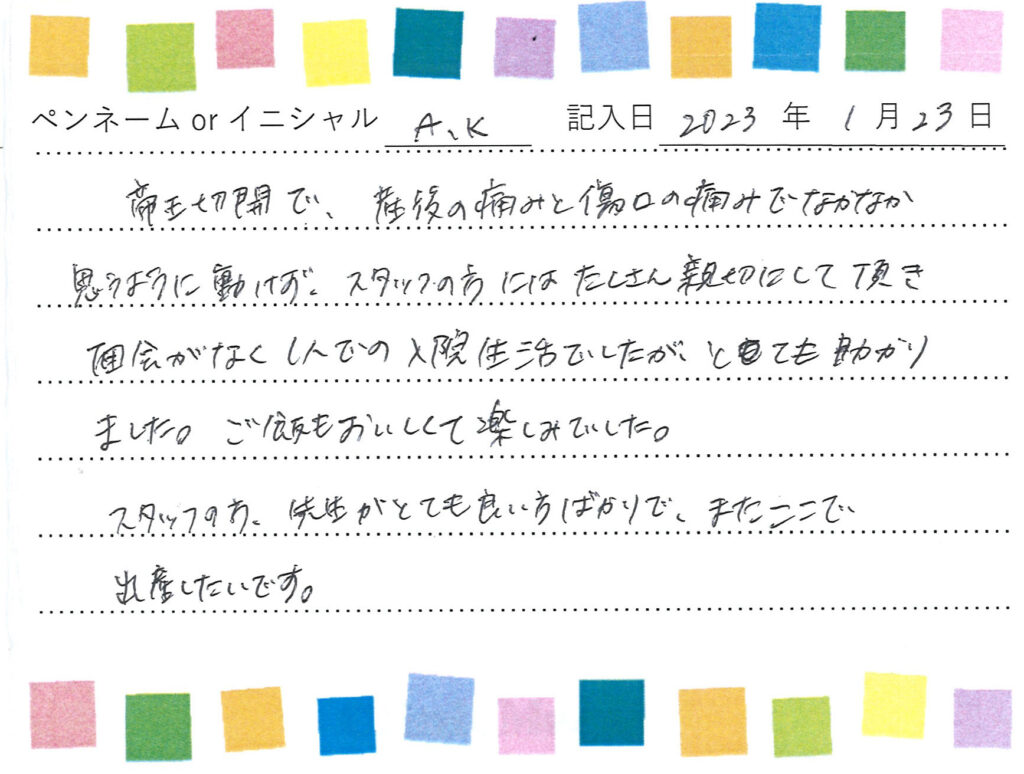 ペンネーム or イニシャル A、K 記入日 2023 年 1 月 23 日
帝王切開で、産後の痛みと傷口の痛みでなかなか
思うように動けず、スタッフの方にはたくさん親切にして頂き
面会がなく1人での入院生活でしたが、とても助かり
ました。ご飯もおいしくて楽しみでした。
スタッフの方、先生がとても良い方ばかりで、またここで
出産したいです。